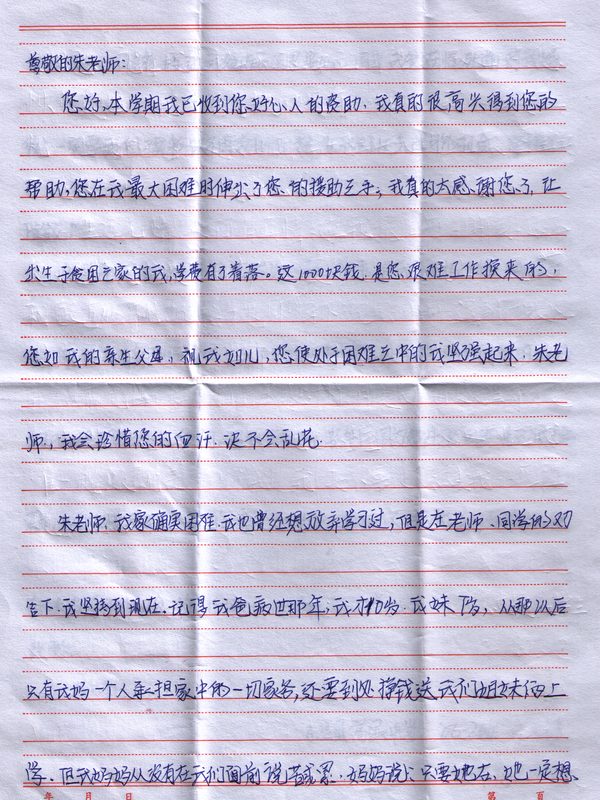 尊敬的朱老师:
您好,本学期我已收到您好心人的资助,我真的很高兴得到您的
帮助,您在我最大困难时伸出了您的援助之手,我真的太感谢您了,让
出生于贫困之家的我,学费有了着落。这1000块钱是您艰难工作换来的,
您如我的亲生父母,视我如儿,您使处于困难之中的我坚强起来,朱老
师,我会珍惜您的血汗.决不会乱花.
朱老师,我家确实困难.我也曾经想放弃学习过,但是在老师、同学的劝
告下.我坚持到现在.记得我爸病世那年,我才10岁.我妹7岁,从那以后
只有我妈一个人承担家中的一切家务,还要到处挣钱送我们姐妹俩上
学.但我妈妈从没有在我们面前说苦或累.妈妈说,只要她在,她一定想
年 月 日 第 页